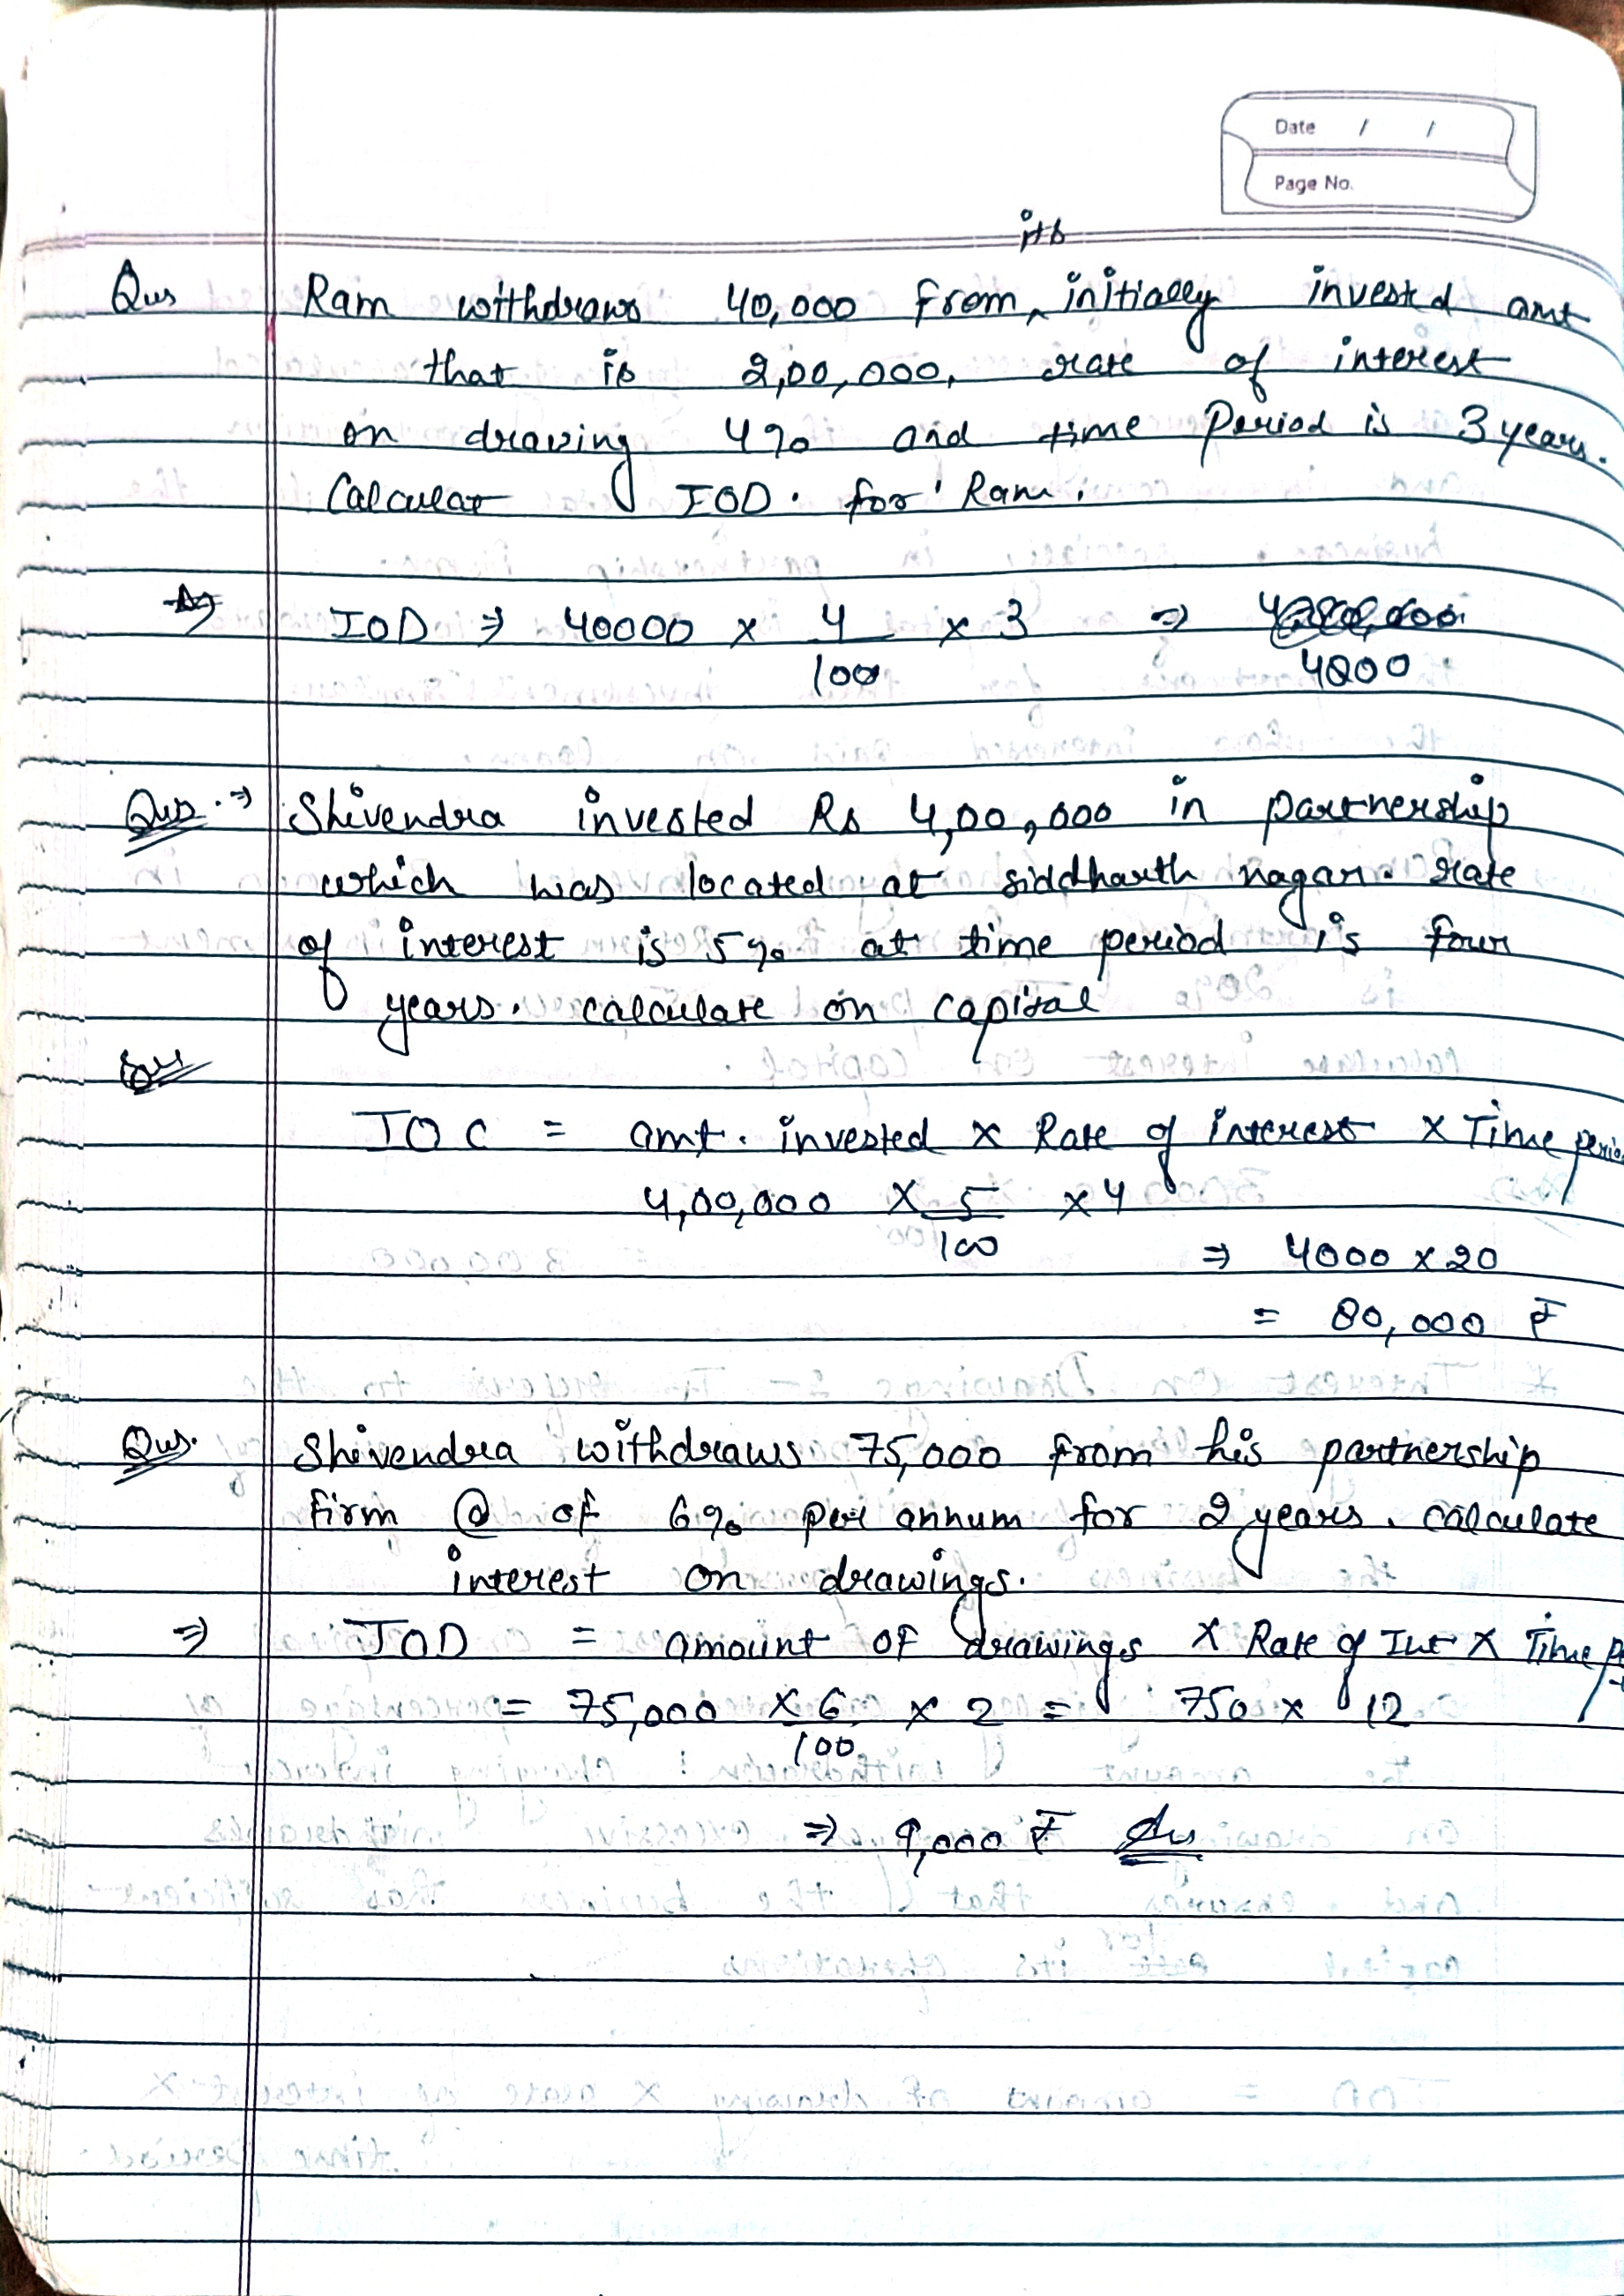 Date / /
Page No.
its
Qus Ram withdraws 40,000 from ^ initially invested amt
that is 2,00,000, rate of interest
on drawing 4% and time Period is 3 years.
Calculat IOD. for Ram.
IOD ⇒ 40000 × 4/100 × 3 ⇒
4800
Qus. ⇒ Shivendra invested Rs 4,00,000 in partnership
which was located at siddharth nagar. rate
of interest is 5% at time period is four
years. calculate on capital
IOC = amt. invested × Rate of interest × Time perio
4,00,000 × 5/100 × 4
⇒ 4000 × 20
= 80,000 ₹
Qus. Shivendra withdraws 75,000 from his partnership
firm @ of 6% per annum for 2 years. calculate
interest on drawings.
⇒ IOD = amount of drawings × Rate of Int × Time
= 75,000 × 6/100 × 2 = 750 × 12
⇒ 9,000 ₹ Ans